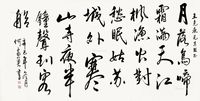 月落烏啼
霜滿天江
楓漁火對
愁眠姑蘇
城外寒
山寺夜半
鐘聲到客
船